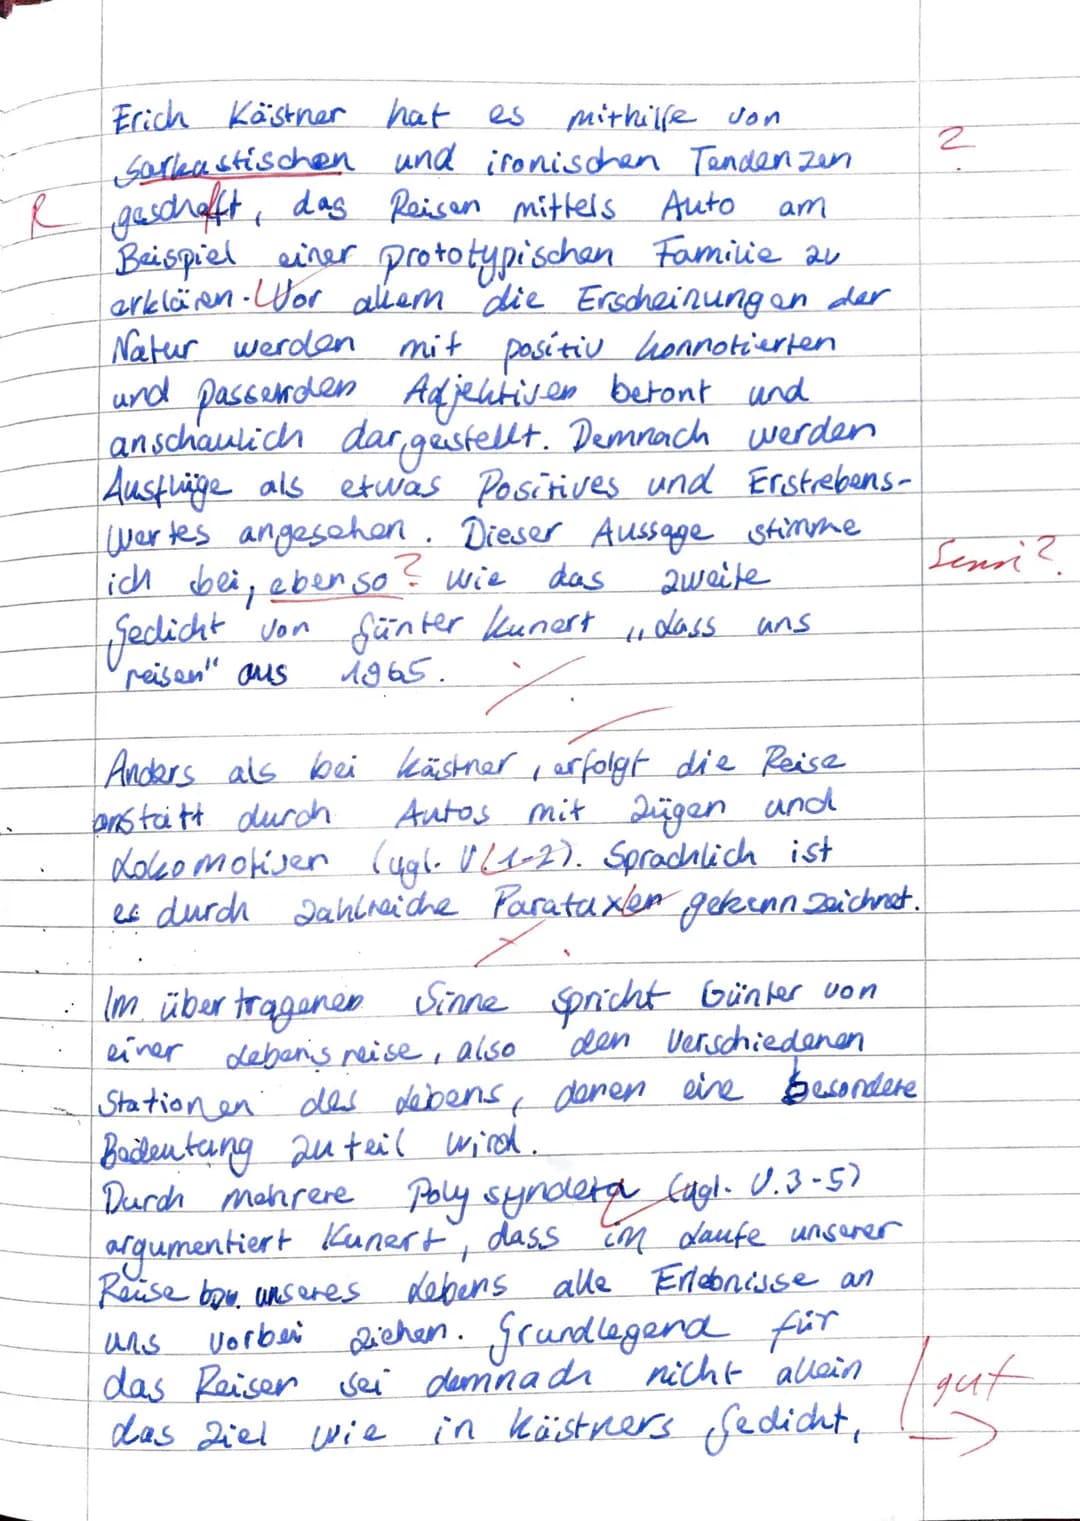 Erich Kästner hat es mithilfe von
sarkastischen und ironischen Tendenzen
?
R
geschafft, das Reisen mittels Auto am
Beispiel einer prototypischen Familie zu
erklären. Vor allem die Erscheinungen der
Natur werden mit positiv konnotierten
und passenden Adjektiven betont und
anschaulich dargestellt. Demnach werden
Ausflüge als etwas Positives und Erstrebens-
wertes angesehen. Dieser Aussage stimme
ich bei, ebenso? wie das zweite
Sinn?
Gedicht von Günter Kunert „dass uns
reisen" aus 1965.
Anders als bei Kästner, erfolgt die Reise
anstatt durch Autos mit Zügen und
Lokomotiven (vgl. V. 1-2). Sprachlich ist
es durch zahlreiche Parataxen gekennzeichnet.
Im übertragenen Sinne spricht Günter von
einer Lebensreise, also den verschiedenen
Stationen des Lebens, denen eine besondere
Bedeutung zuteil wird.
Durch mehrere Polysyndeta (vgl. V. 3-5)
argumentiert Kunert, dass im Laufe unserer
Reise bzw. unseres Lebens alle Erlebnisse an
uns vorbei ziehen. Grundlegend für
das Reisen sei demnach nicht allein
gut
das Ziel wie in Kästners Gedicht,